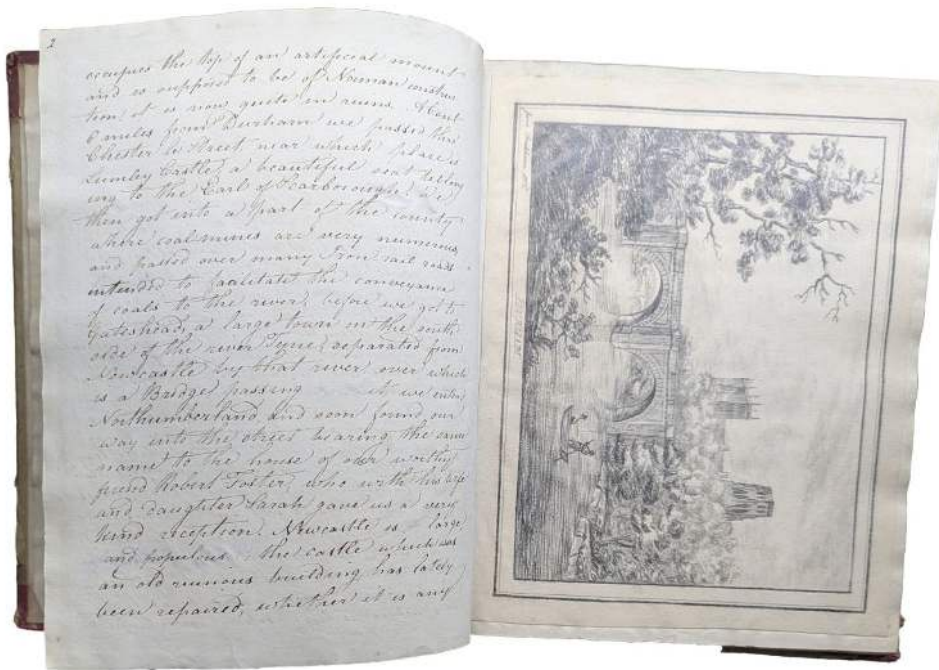 2
occupies the top of an artificial mount
and is supposed to be of Norman construc
tion, it is now quite in ruins. About
6 miles from Durham we passed thro
Chester le Street near which place is
Lumley Castle, a beautiful seat belong
ing to the Earl of Scarborough. We
then got into a part of the county
where coal mines are very numerous,
and passed over many Iron rail roads
intended to facilitate the conveyance
of coals to the river, before we got to
Gateshead, a large town on the south
side of the river Tyne, separated from
Newcastle by that river over which
is a Bridge passing it we enter
Northumberland and soon found our
way into the street bearing the same
name to the house of our worthy
friend Robert Foster, who with his wife
and daughter Sarah gave us a very
kind reception. Newcastle is large
and populous, the castle which was
an old ruinous building has lately
been repaired, whether it is any